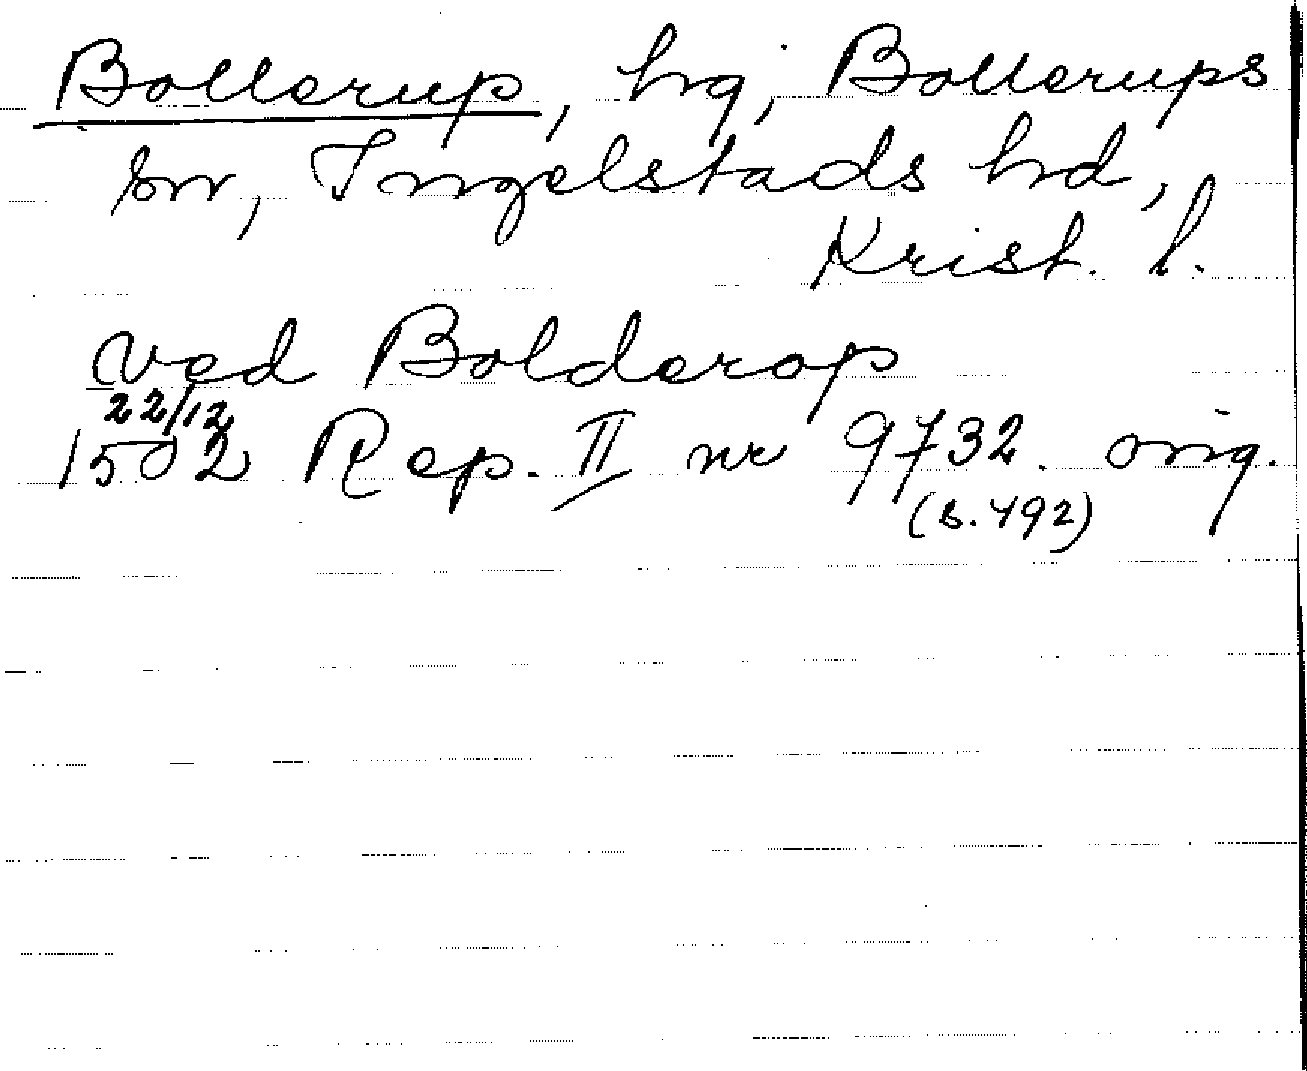 Bollerup, hg, Bollerups
sn, Ingelstads hd,
Krist. l.
ved Bolderop
22/12
1502 Rep. II nr 9732. orig.
(s. 492)